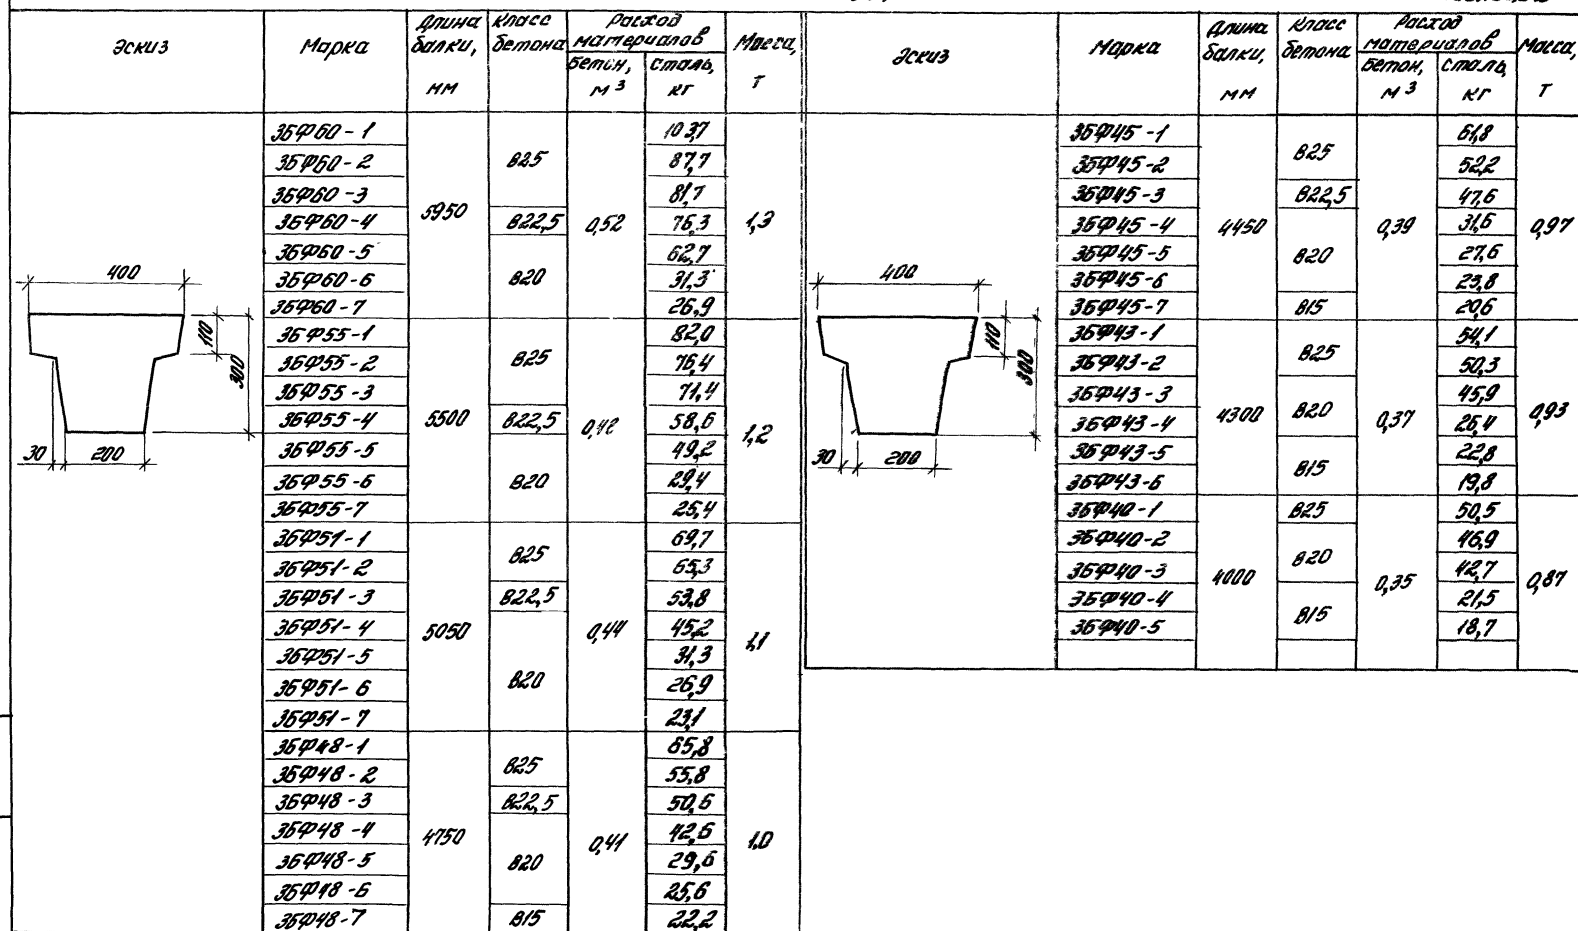 Эскиз Марка Длина балки, мм Класс бетона Расход материалов Бетон, м³ Сталь, кг Масса, т
3БФ60-1 5950 В25 0,52 103,7 1,3
3БФ60-2 87,7
3БФ60-3 81,7
3БФ60-4 В22,5 76,3
3БФ60-5 В20 62,7
3БФ60-6 31,3
3БФ60-7 26,9
3БФ55-1 5500 В25 0,42 82,0 1,2
3БФ55-2 76,4
3БФ55-3 71,4
3БФ55-4 В22,5 58,6
3БФ55-5 В20 49,2
3БФ55-6 29,4
3БФ55-7 25,4
3БФ51-1 5050 В25 0,44 69,7 1,1
3БФ51-2 65,3
3БФ51-3 В22,5 53,8
3БФ51-4 В20 45,2
3БФ51-5 31,3
3БФ51-6 26,9
3БФ51-7 23,1
3БФ48-1 4750 В25 0,41 65,8 1,0
3БФ48-2 55,8
3БФ48-3 В22,5 50,6
3БФ48-4 В20 42,6
3БФ48-5 29,6
3БФ48-6 25,6
3БФ48-7 В15 22,2
400
110
300
30 200
Эскиз Марка Длина балки, мм Класс бетона Расход материалов Бетон, м³ Сталь, кг Масса, т
3БФ45-1 4450 В25 0,39 61,8 0,97
3БФ45-2 52,2
3БФ45-3 В22,5 47,6
3БФ45-4 В20 31,6
3БФ45-5 27,6
3БФ45-6 23,8
3БФ45-7 В15 20,6
3БФ43-1 4300 В25 0,37 54,1 0,93
3БФ43-2 50,3
3БФ43-3 В20 45,9
3БФ43-4 26,4
3БФ43-5 В15 22,8
3БФ43-6 19,8
3БФ40-1 4000 В25 0,35 50,5 0,87
3БФ40-2 В20 46,9
3БФ40-3 42,7
3БФ40-4 В15 21,5
3БФ40-5 18,7
400
110
300
30 200